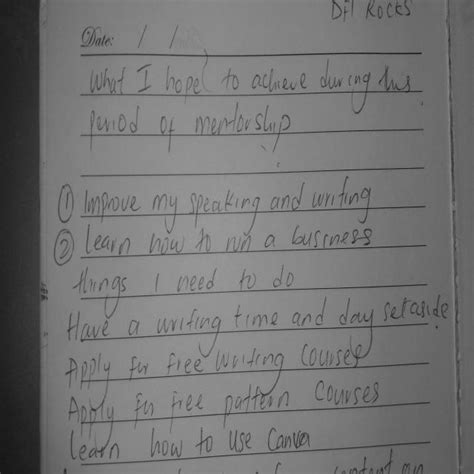 DFI Rocks
Date: / /
What I hope to achieve during this
period of mentorship
① Improve my speaking and writing
② Learn how to run a business
things I need to do
Have a writing time and day set aside
Apply for free writing courses
Apply for free pattern courses
Learn how to use Canva
content on